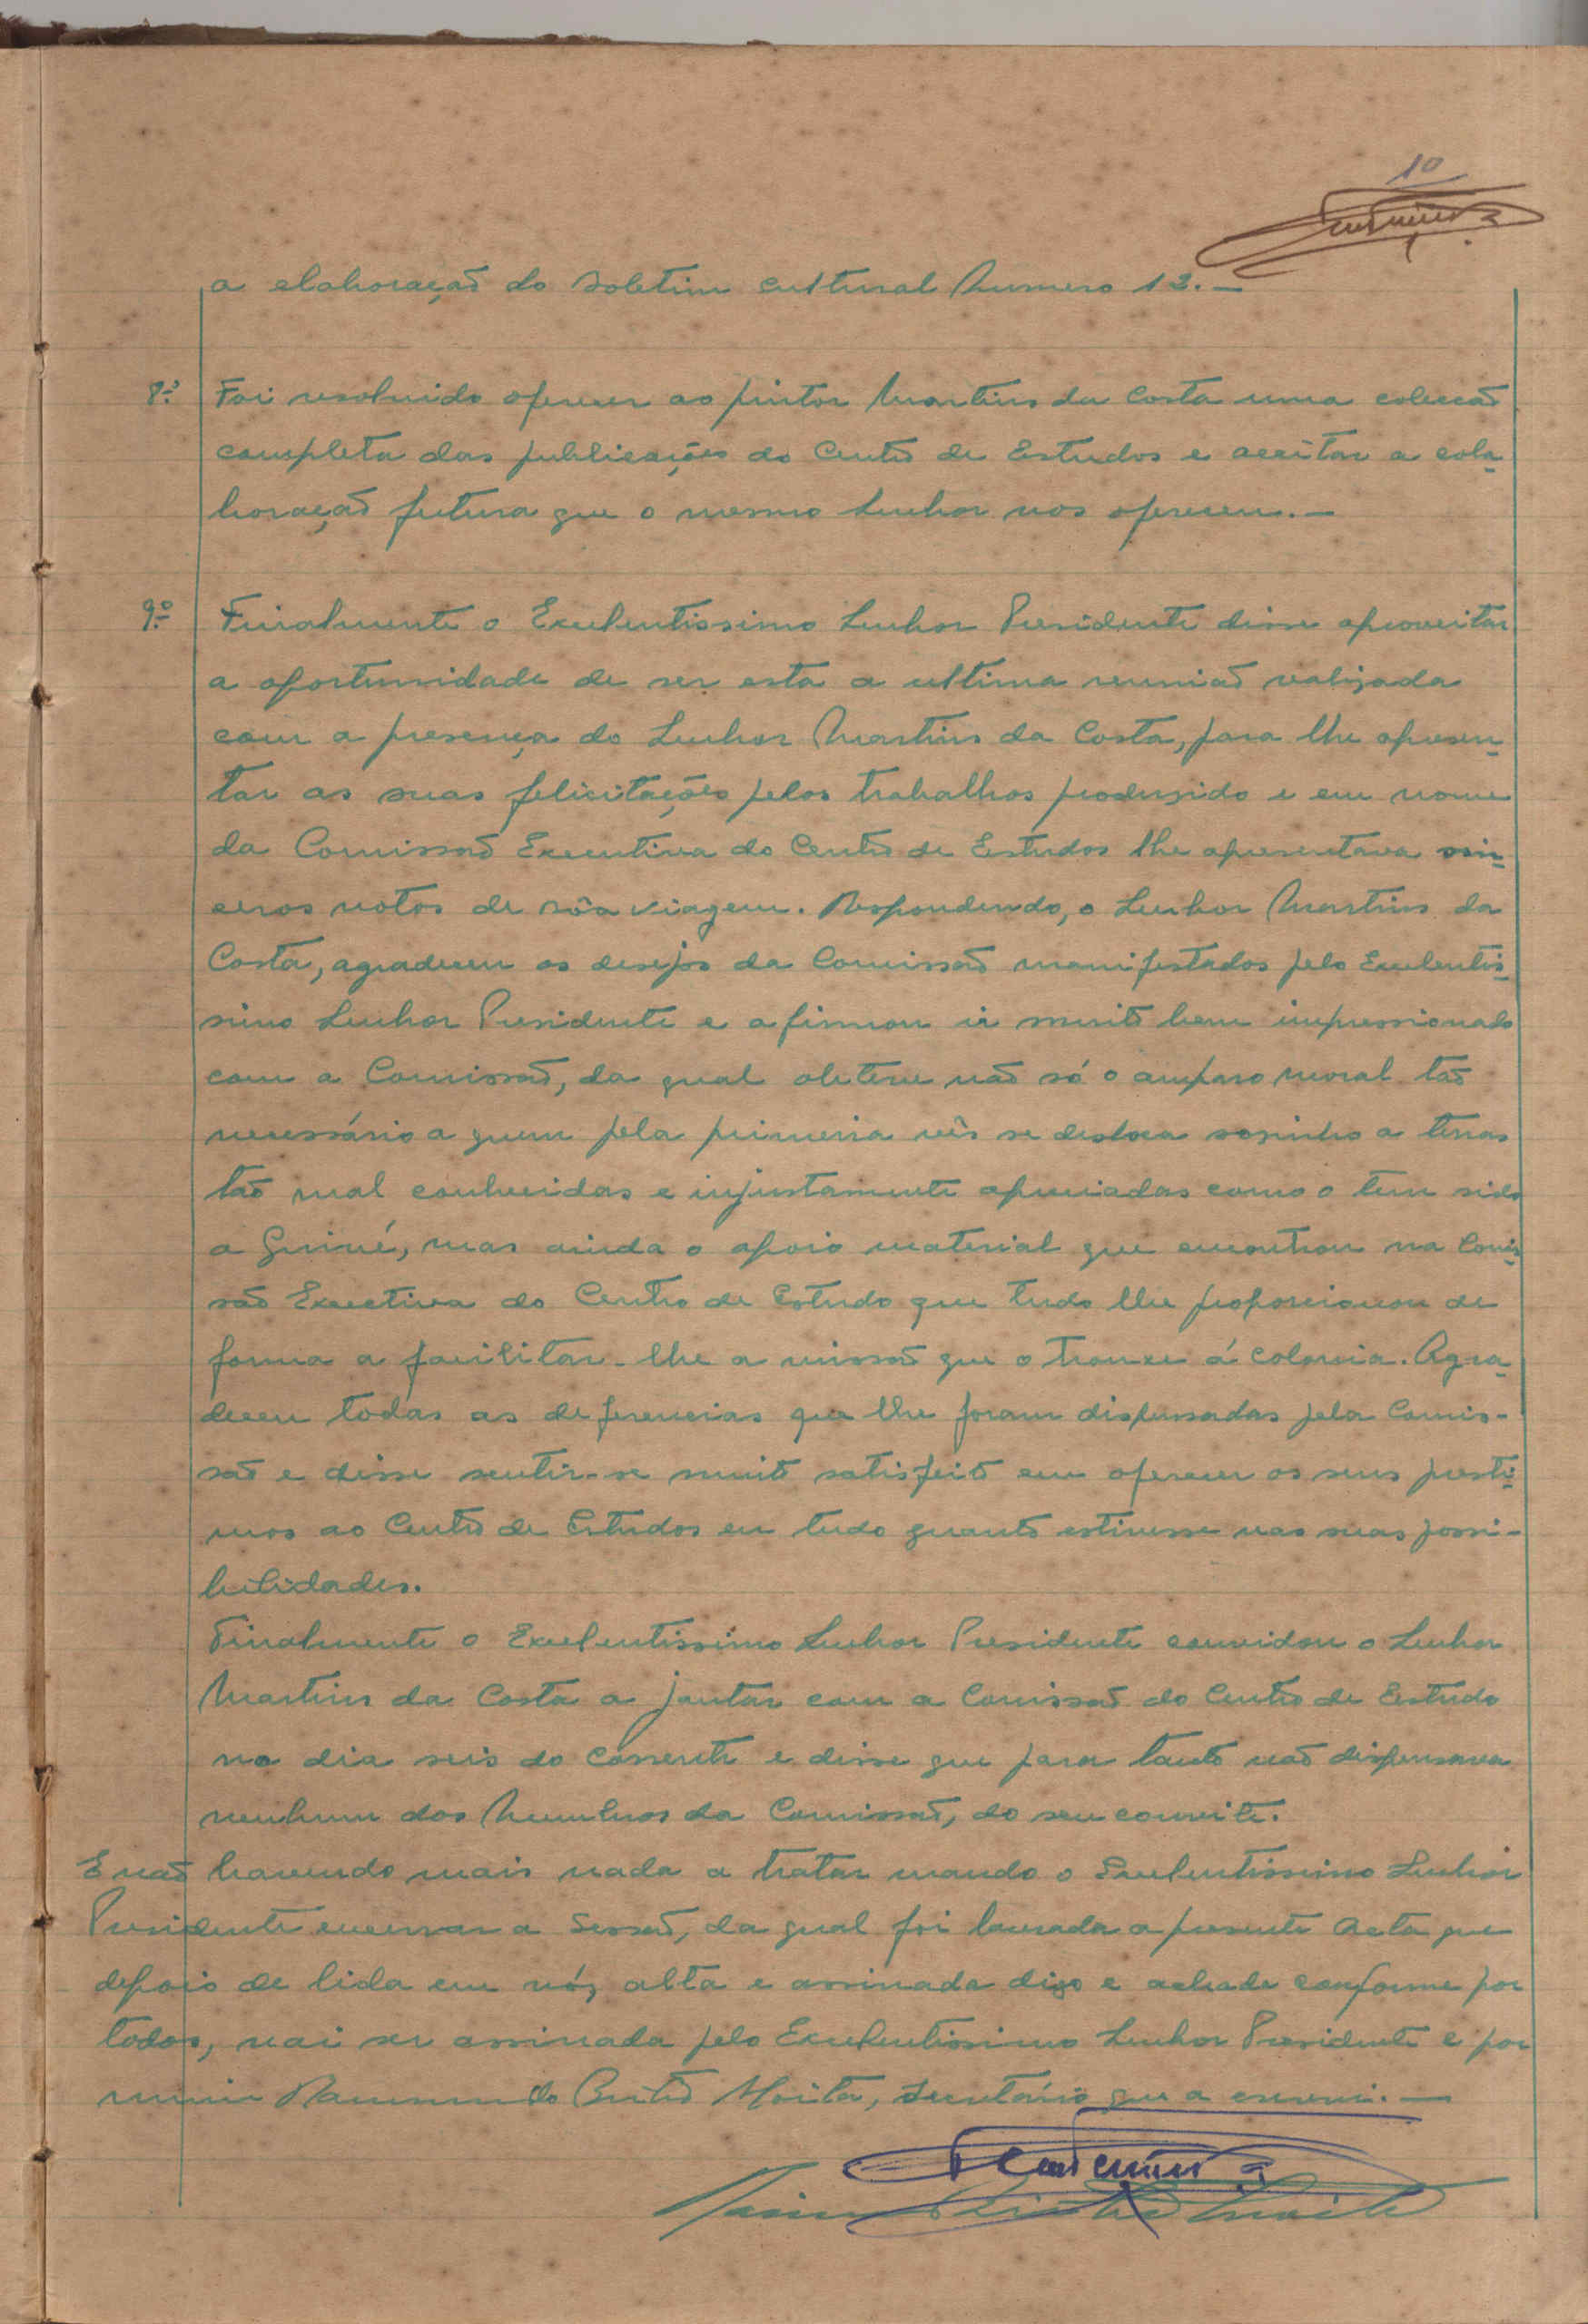 10
a elaboração do Boletim Cultural Numero 13.—
8º Foi resolvido oferecer ao pintor Martins da Costa uma colecção
completa das publicações do Centro de Estudos e aceitar a cola-
boração futura que o mesmo Senhor nos ofereceu.—
9º Finalmente o Excelentissimo Senhor Presidente disse aproveitar
a oportunidade de ser esta a ultima reunião realizada
com a presença do Senhor Martins da Costa, para lhe apresen-
tar as suas felicitações pelos trabalhos produzido e em nome
da Comissão Executiva do Centro de Estudos lhe apresentava sin-
ceros votos de bôa viagem. Respondendo, o Senhor Martins da
Costa, agradeceu os desejos da Comissão manifestados pelo Excelentis-
simo Senhor Presidente e afirmou ir muito bem impressionado
com a Comissão, da qual obteve não só o amparo moral tão
necessário a quem pela primeira vês se desloca sosinho a terras
tão mal conhecidas e injustamente apreciadas como o tem sido
a Guiné, mas ainda o apoio material que encontrou na Comis-
são Executiva do Centro de Estudo que tudo lhe proporcionou de
forma a facilitar-lhe a missão que o trouxe á colonia. Agra-
deceu todas as deferencias que lhe foram dispensadas pela Comis-
são e disse sentir-se muito satisfeito em oferecer os seus presti-
mos ao Centro de Estudos em tudo quanto estivesse nas suas possi-
bilidades.
Finalmente o Excelentissimo Senhor Presidente convidou o Senhor
Martins da Costa a jantar com a Comissão do Centro de Estudo
no dia seis do corrente e disse que para tanto não dispensava
nenhum dos Membros da Comissão, do seu convite.
E não havendo mais nada a tratar mando o Excelentissimo Senhor
Presidente encerrar a Sessão, da qual foi lavrada a presente acta que
depois de lida em vós alta e assinada digo e achada conforme por
todos, vai ser assinada pelo Excelentissimo Senhor Presidente e por
mim Brito Moita, Secretário que a escrevi.—